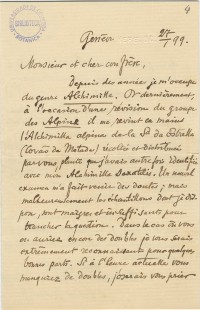 4
BIBLIOTHECA
Genève 27/1 99.
Monsieur et cher confrère,
Depuis des années je m'occupe
du genre Alchimilla. Or dernièrement,
à l'occasion d'une révision du groupe
des Alpinæ il me revint en mains
l'Alchimilla alpina de la Sa da Estrella
récoltée et distribuée
par vous plante que j'avais autrefois identifiée
avec mon Alchimilla saxatilis. Un nouvel
examen m'a fait venir des doutes; mais
malheureusement les échantillons dont je dis-
pose, sont maigres et insuffisants pour
trancher la question. Dans le cas où vous
en auriez encore des doubles je vous serais
extrêmement reconnaissant pour quelques
bonnes parts. Si à l'heure actuelle vous
manquiez de doubles, j'oserais vous prier